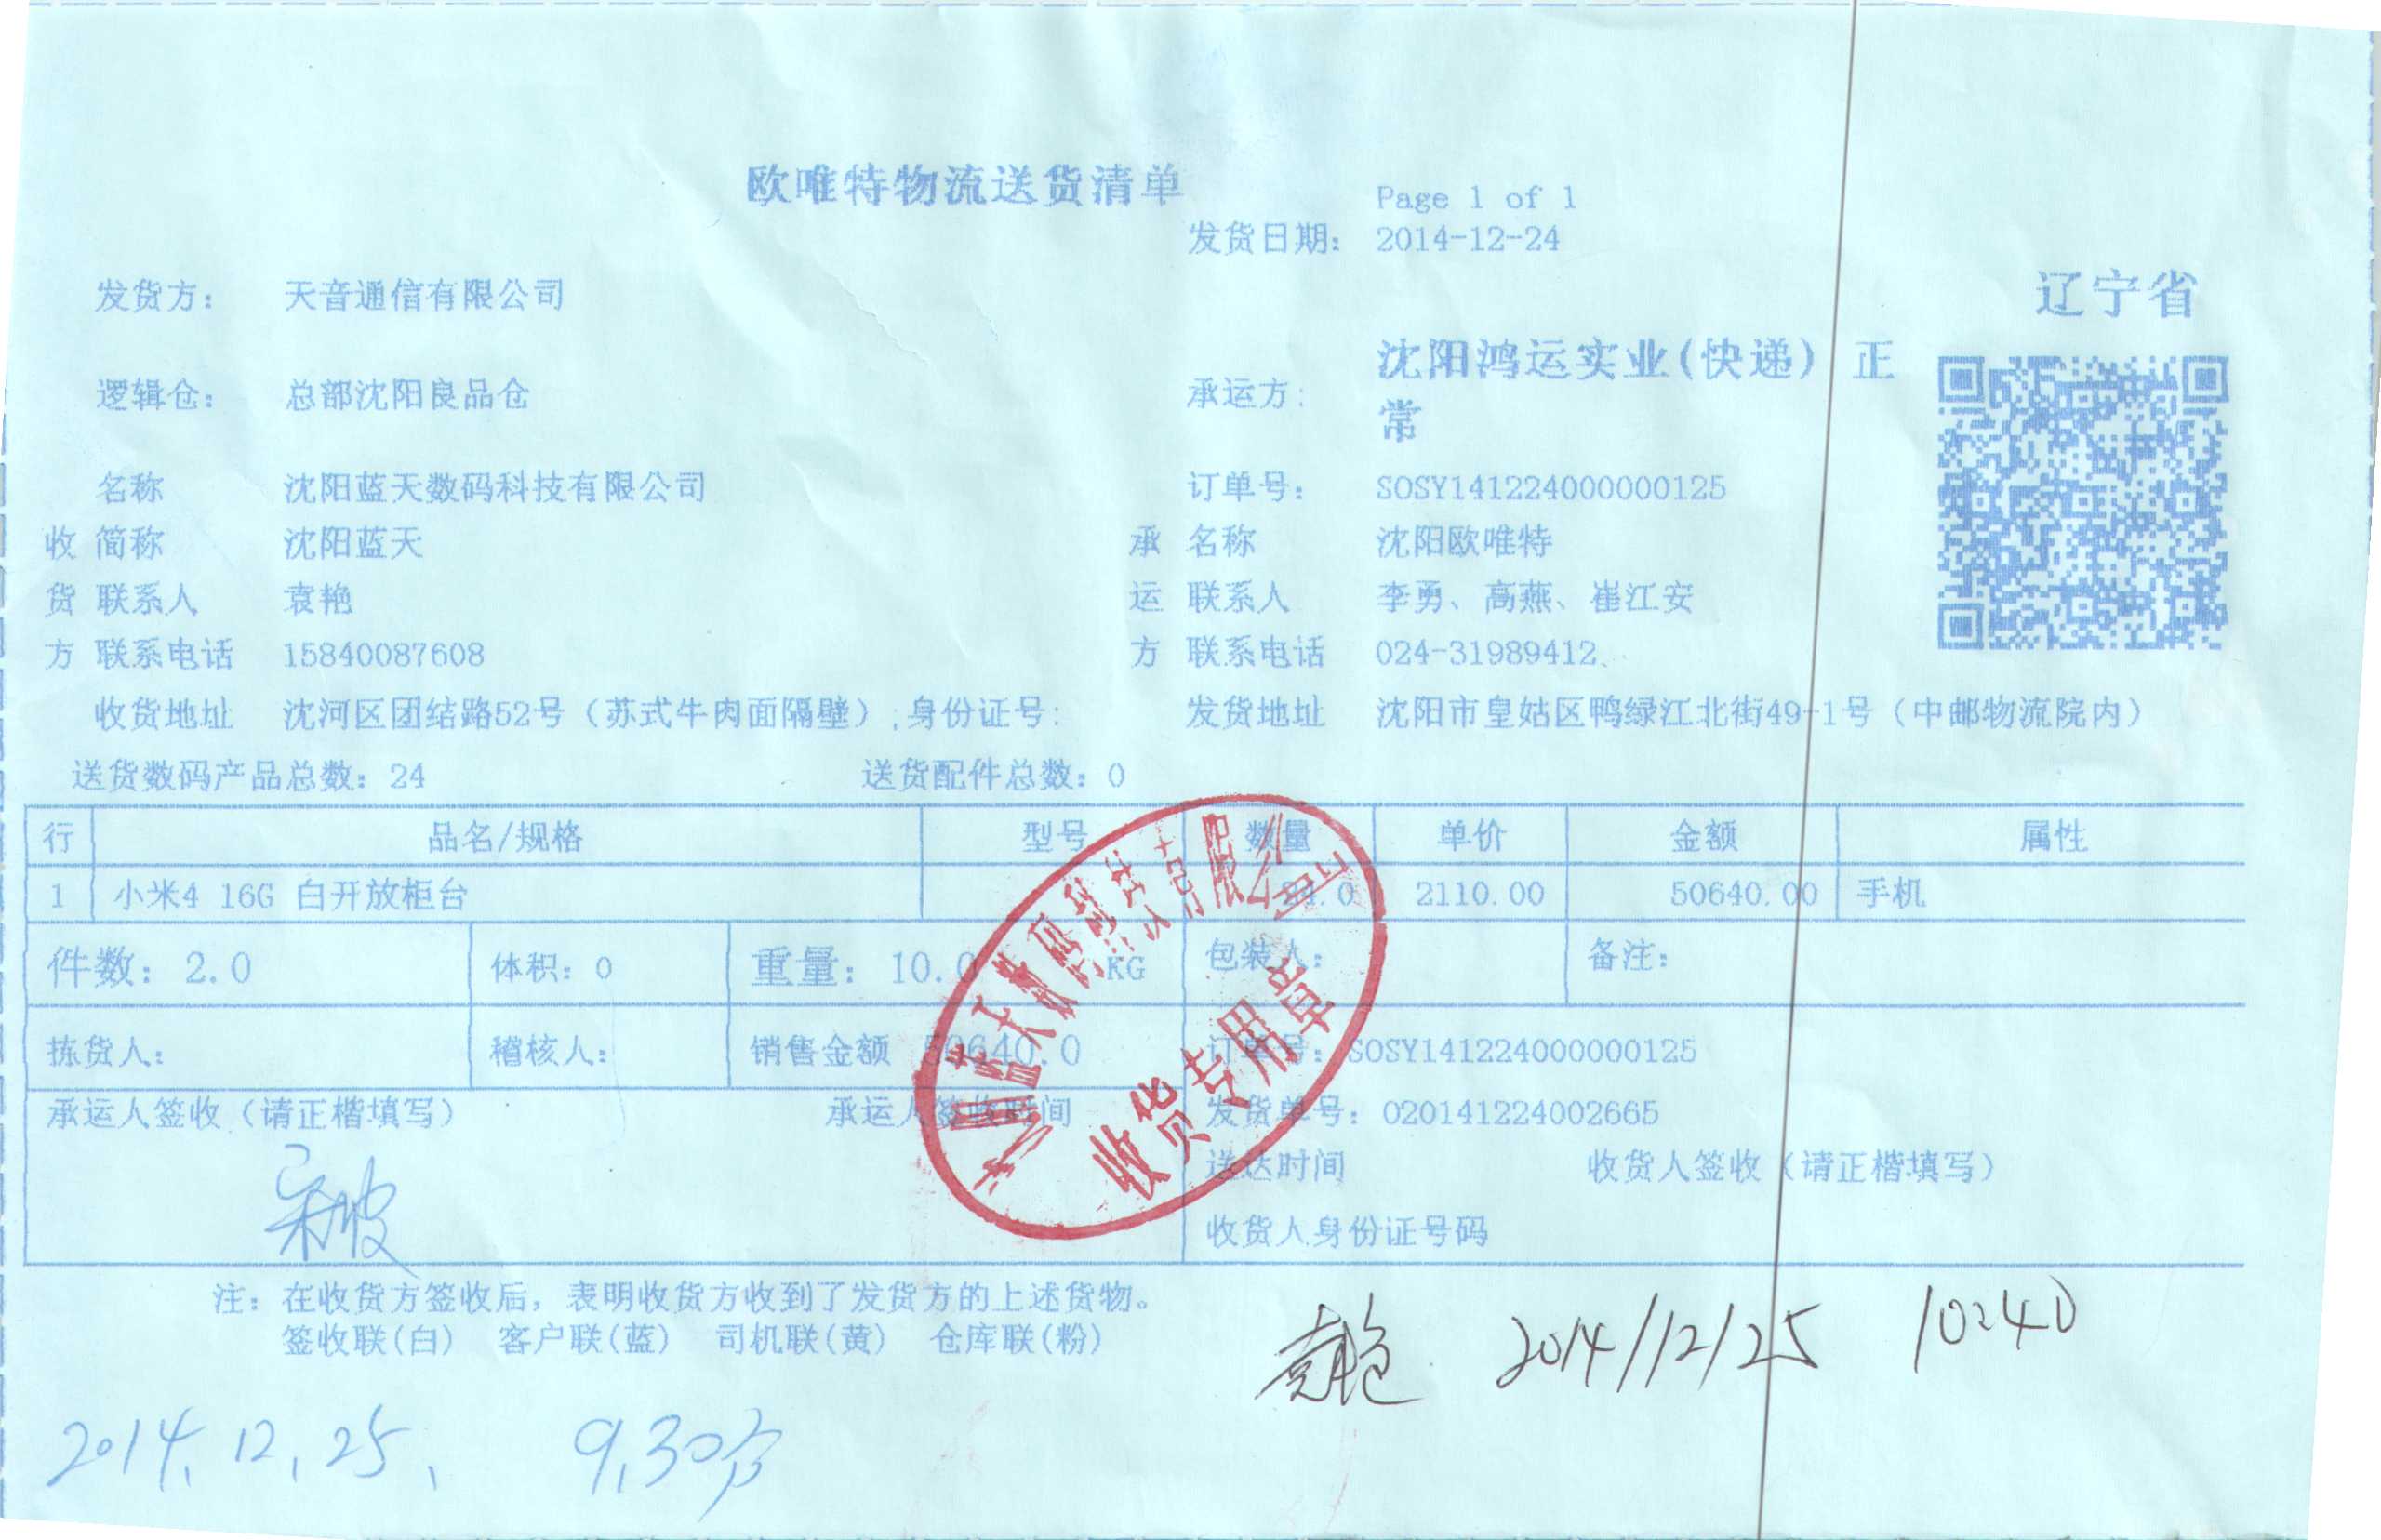 欧唯特物流送货清单
Page 1 of 1
发货日期： 2014-12-24
辽宁省
发货方： 天音通信有限公司
逻辑仓： 总部沈阳良品仓 承运方： 沈阳鸿运实业(快递) 正
常
名称 沈阳蓝天数码科技有限公司 订单号： SOSY141224000000125
收 简称 沈阳蓝天 承 名称 沈阳欧唯特
货 联系人 袁艳 运 联系人 李勇、高燕、崔江安
方 联系电话 15840087608 方 联系电话 024-31989412、
收货地址 沈河区团结路52号（苏式牛肉面隔壁）;身份证号: 发货地址 沈阳市皇姑区鸭绿江北街49-1号（中邮物流院内）
送货数码产品总数：24 送货配件总数：0
行 品名/规格 型号 数量 单价 金额 属性
1 小米4 16G 白开放柜台 24.0 2110.00 50640.00 手机
件数：2.0 体积：0 重量：10.0 KG 包装人： 备注：
拣货人： 稽核人： 销售金额 50640.0 订单号：SOSY141224000000125
承运人签收（请正楷填写） 承运人签收时间 发货单号：020141224002665
送达时间 收货人签收（请正楷填写）
收货人身份证号码
沈阳蓝天数码科技有限公司
收货专用章
注：在收货方签收后，表明收货方收到了发货方的上述货物。
签收联(白) 客户联(蓝) 司机联(黄) 仓库联(粉)
袁艳 2014/12/25 10:40
2014.12.25. 9.30分